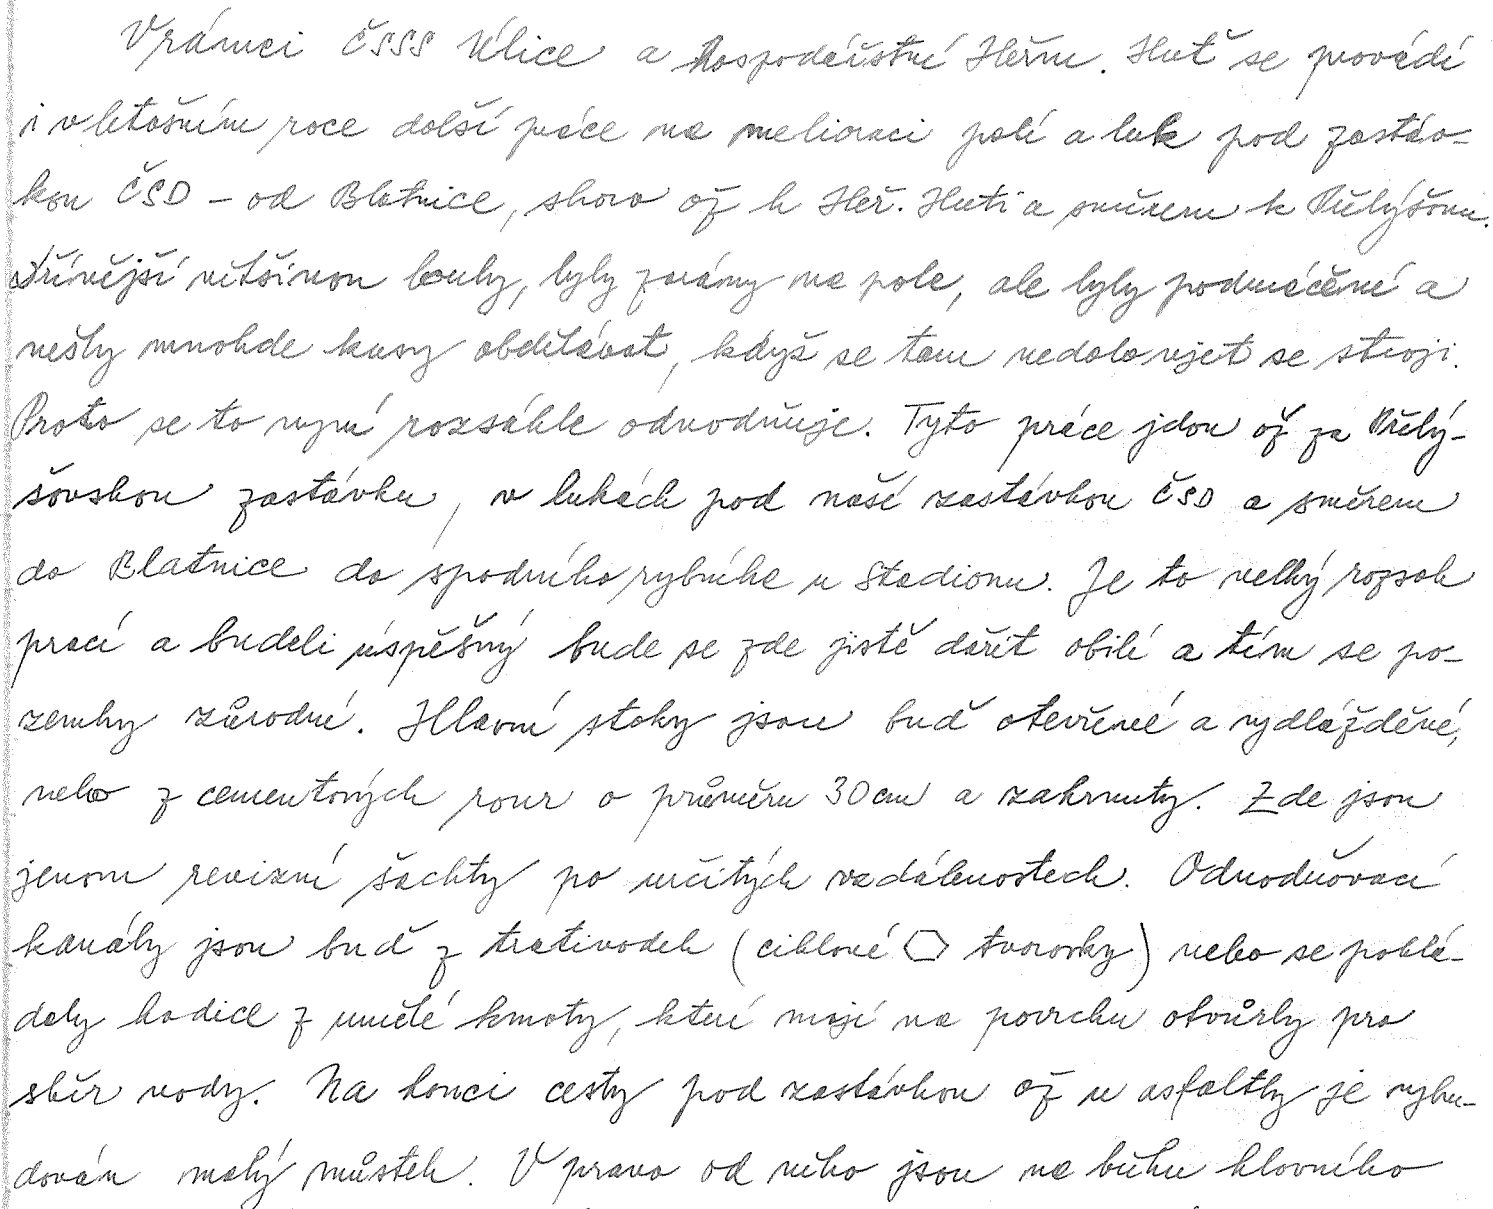 V rámci ČSSS Úlice a hospodářství Heřm. Huť se provádí
i v letošním roce další práce na melioraci polí a luk pod zastáv-
kou ČSD - od Blatnice, shora až k Heř. Huti a směrem k Přehýšovu.
Dřívější většinou louky, byly zorány na pole, ale byly podmáčené a
nešly mnohde kusy obdělávat, když se tam nedalo vjet se stroji.
Proto se to nyní rozsáhle odvodňuje. Tyto práce jdou až za Přehý-
šovskou zastávku, v lukách pod naší zastávkou ČSD a směrem
do Blatnice do spodního rybníka u Stadionu. Je to velký rozsah
prací a budeli úspěšný bude se zde jistě dařit obilí a tím se po-
zemky zúrodní. Hlavní stoky jsou buď otevřené a vydlážděné,
nebo z cementových rour o průměru 30 cm a zahrnuty. Zde jsou
jenom revizní šachty po určitých vzdálenostech. Odvodňovací
kanály jsou buď z trativodek (cihlové ⬡ tvarovky) nebo se poklá-
daly hadice z umělé hmoty, které mají na povrchu otvůrky pro
sběr vody. Na konci cesty pod zastávkou až u asfaltky je vybu-
dován malý můstek. V pravo od něho jsou na břehu hlavního